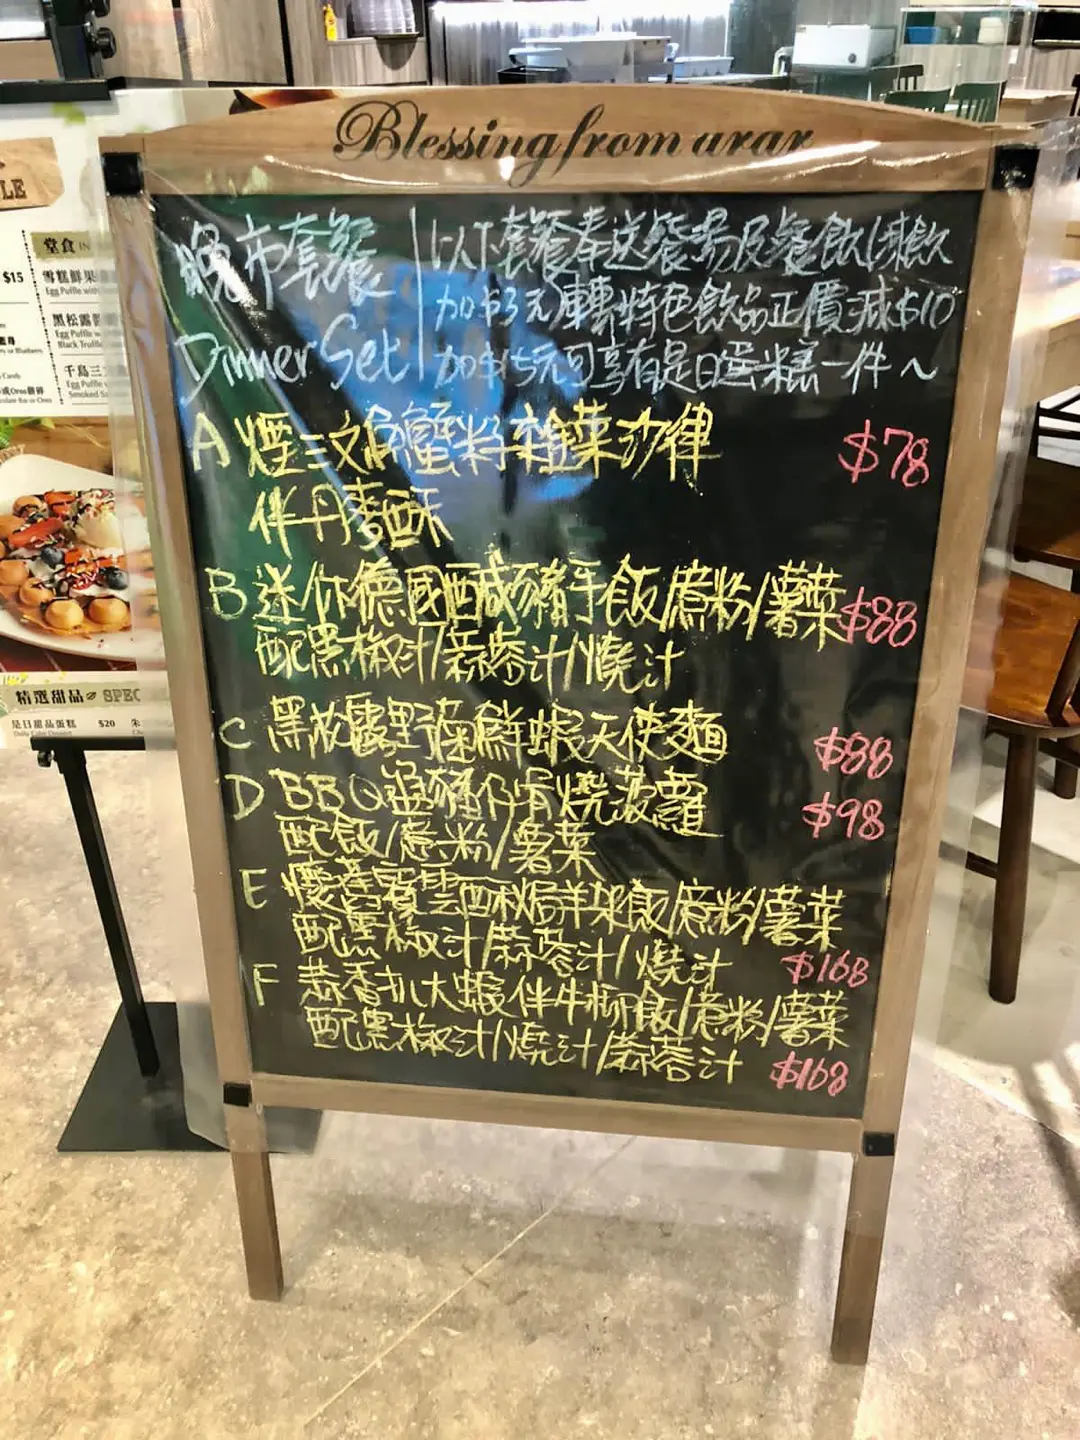 Blessing from arar
晚市套餐
以下套餐奉送餐湯及餐飲/凍飲
加$3元轉特色飲品正價減$10
Dinner Set
加$15元可享有是日蛋糕一件~
A 煙三文魚蟹籽雜菜沙律 $78
伴丹麥酥
B 迷你德國鹹豬手飯/意粉/薯菜 $88
配黑椒汁/蒜蓉汁/燒汁
C 黑松露野菌鮮蝦天使麵 $88
D BBQ 豬仔骨燒菠蘿 $98
配飯/意粉/薯菜
E 羊架飯/意粉/薯菜
配黑椒汁/蒜蓉汁/燒汁 $168
F 蒜香扒大蝦伴牛柳飯/意粉/薯菜
配黑椒汁/燒汁/蒜蓉汁 $168
LE
堂食 IN
$15
雪糕鮮果
Egg Puffle with
黑松露
Egg Puffle
Black Truffle
千島三
Egg Puffle
Smoked Sa
精選甜品 SPEC
是日甜品蛋糕 $20 朱